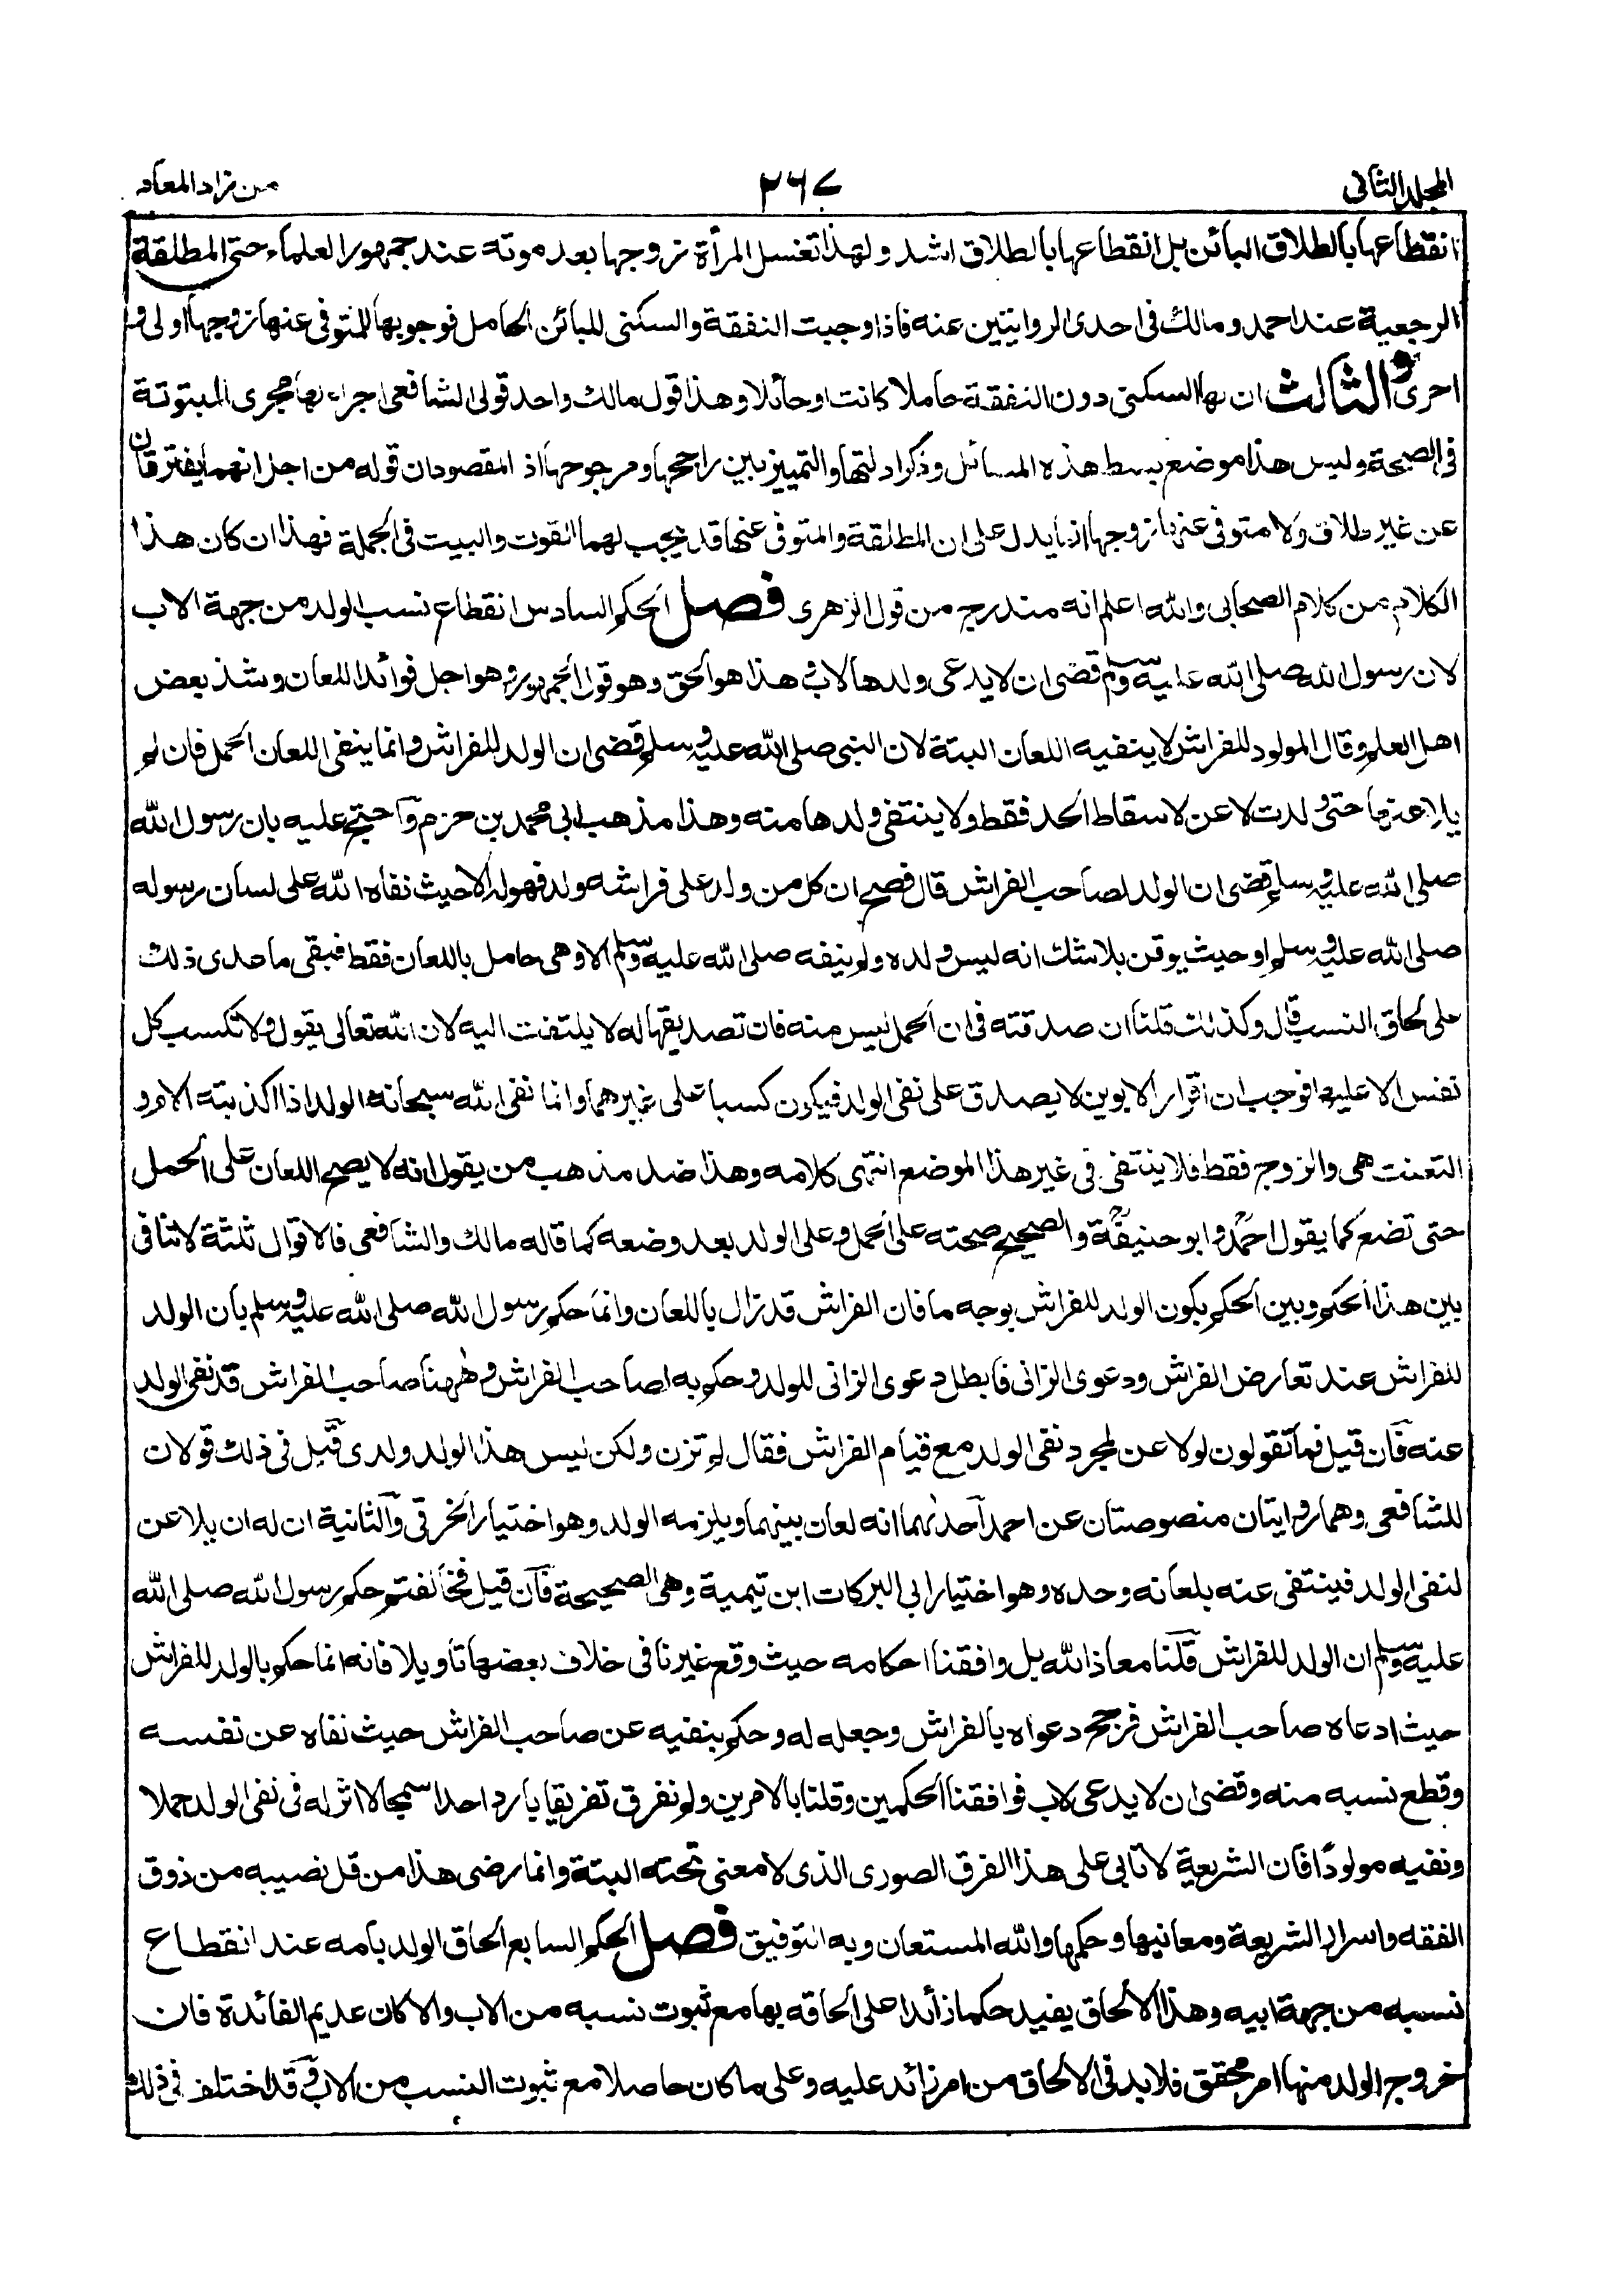 المجلد الثانی
٢٦٧
من زاد المعاد
انقطاعها بالطلاق البائن بل انقطاعها بالطلاق اشد ولهذا تغسل المرأة زوجها بعد موته عند جمهور العلماء حتى المطلقة
الرجعية عند احمد ومالك فى احدى الروايتين عنه فاذا وجبت النفقة والسكنى للبائن الحامل فوجوبها للمتوفى عنها زوجها اولى و
احرى والثالث ان لها السكنى دون النفقة حاملا كانت او حائلا وهذا قول مالك واحد قولى الشافعى اجراء لها مجرى المبتوتة
فى الصحة وليس هذا موضع بسط هذه المسائل وذكر ادلتها والتمييز بين راجحها ومرجوحها اذ المقصود ان قوله من اجل انهما يفترقان
عن غير طلاق ولا متوفى عنها زوجها انما يدل على ان المطلقة والمتوفى عنها قد يجب لهما القوت والبيت فى الجملة فهذا ان كان هذا
الكلام من كلام الصحابى والله اعلم انه مندرج من قول الزهرى فصل الحكم السادس انقطاع نسب الولد من جهة الاب
لان رسول الله صلى الله عليه وسلم قضى ان لا يدعى ولدها لاب هذا هو الحق وهو قول الجمهور وهو اجل فوائد اللعان وشذ بعض
اهل العلم وقال المولود للفراش لا ينفيه اللعان البتة لان النبى صلى الله عليه وسلم قضى ان الولد للفراش وانما ينفى اللعان الحمل فان لم
يلاعنها حتى ولدت لاعن لاسقاط الحد فقط ولا ينتفى ولدها منه وهذا مذهب ابى محمد بن حزم واحتج عليه بان رسول الله
صلى الله عليه وسلم قضى ان الولد لصاحب الفراش قال فصح ان كل من ولد على فراشه ولد فهو له الا حيث نفاه الله على لسان رسوله
صلى الله عليه وسلم او حيث يوقن بلا شك انه ليس ولده ولم ينفه صلى الله عليه وسلم الا وهى حامل باللعان فقط فبقى ما عدى ذلك
على لحاق النسب قال وكذلك قلنا ان صدقته فى ان الحمل ليس منه فان تصديقها له لا يلتفت اليه لان الله تعالى يقول ولا تكسب كل
نفس الا عليها فوجب ان اقرار الابوين لا يصدق على نفى الولد فيكون كسبا على غيرهما وانما نفى الله سبحانه الولد اذا اكذبته الام و
التعنت هى والزوج فقط فلا ينتفى فى غير هذا الموضع انتهى كلامه وهذا ضد مذهب من يقول انه لا يصح اللعان على الحمل
حتى تضع كما يقول احمد وابو حنيفة والصحيح صحته على الحمل وعلى الولد بعد وضعه كما قاله مالك والشافعى فالاقوال ثلثة لا تنافى
بين هذا الحكم وبين الحكم بكون الولد للفراش بوجه ما فان الفراش قد زال باللعان وانما حكم رسول الله صلى الله عليه وسلم بان الولد
للفراش عند تعارض الفراش ودعوى الزانى فابطل دعوى الزانى للولد وحكم به لصاحب الفراش وههنا صاحب الفراش قد نفى الولد
عنه فان قيل فما تقولون لو لاعن لمجرد نفى الولد مع قيام الفراش فقال لم تزن ولكن ليس هذا الولد ولدى قيل فى ذلك قولان
للشافعى وهما روايتان منصوصتان عن احمد احدهما انه لعان بينهما ويلزمه الولد وهو اختيار الخرقى والثانية ان له ان يلاعن
لنفى الولد فينتفى عنه بلعانه وحده وهو اختيار ابى البركات ابن تيمية وهى الصحيحة فان قيل فخالفتم حكم رسول الله صلى الله
عليه وسلم ان الولد للفراش قلنا معاذ الله بل وافقنا احكامه حيث وقع غيرنا فى خلاف بعضها تاويلا فانه انما حكم بالولد للفراش
حيث ادعاه صاحب الفراش فرجح دعواه بالفراش وجعله له وحكم بنفيه عن صاحب الفراش حيث نفاه عن نفسه
وقطع نسبه منه وقضى ان لا يدعى لاب فوافقنا الحكمين وقلنا بالامرين ولم نفرق تفريقا باردا حدا سمجا لا اثر له فى نفى الولد حملا
ونفيه مولودا فان الشريعة لا تابى على هذا الفرق الصورى الذى لا معنى تحته البتة وانما رضى هذا من قل نصيبه من ذوق
الفقه واسرار الشريعة ومعانيها وحكمها والله المستعان وبه التوفيق فصل الحكم السابع الحاق الولد بامه عند انقطاع
نسبه من جهة ابيه وهذا الالحاق يفيد حكما زائدا على الحاقه بها مع ثبوت نسبه من الاب والا كان عديم الفائدة فان
خروج الولد منها امر محقق فلا بد فى الالحاق من امر زائد عليه وعلى ما كان حاصلا مع ثبوت النسب من الاب وقد اختلف فى ذلك